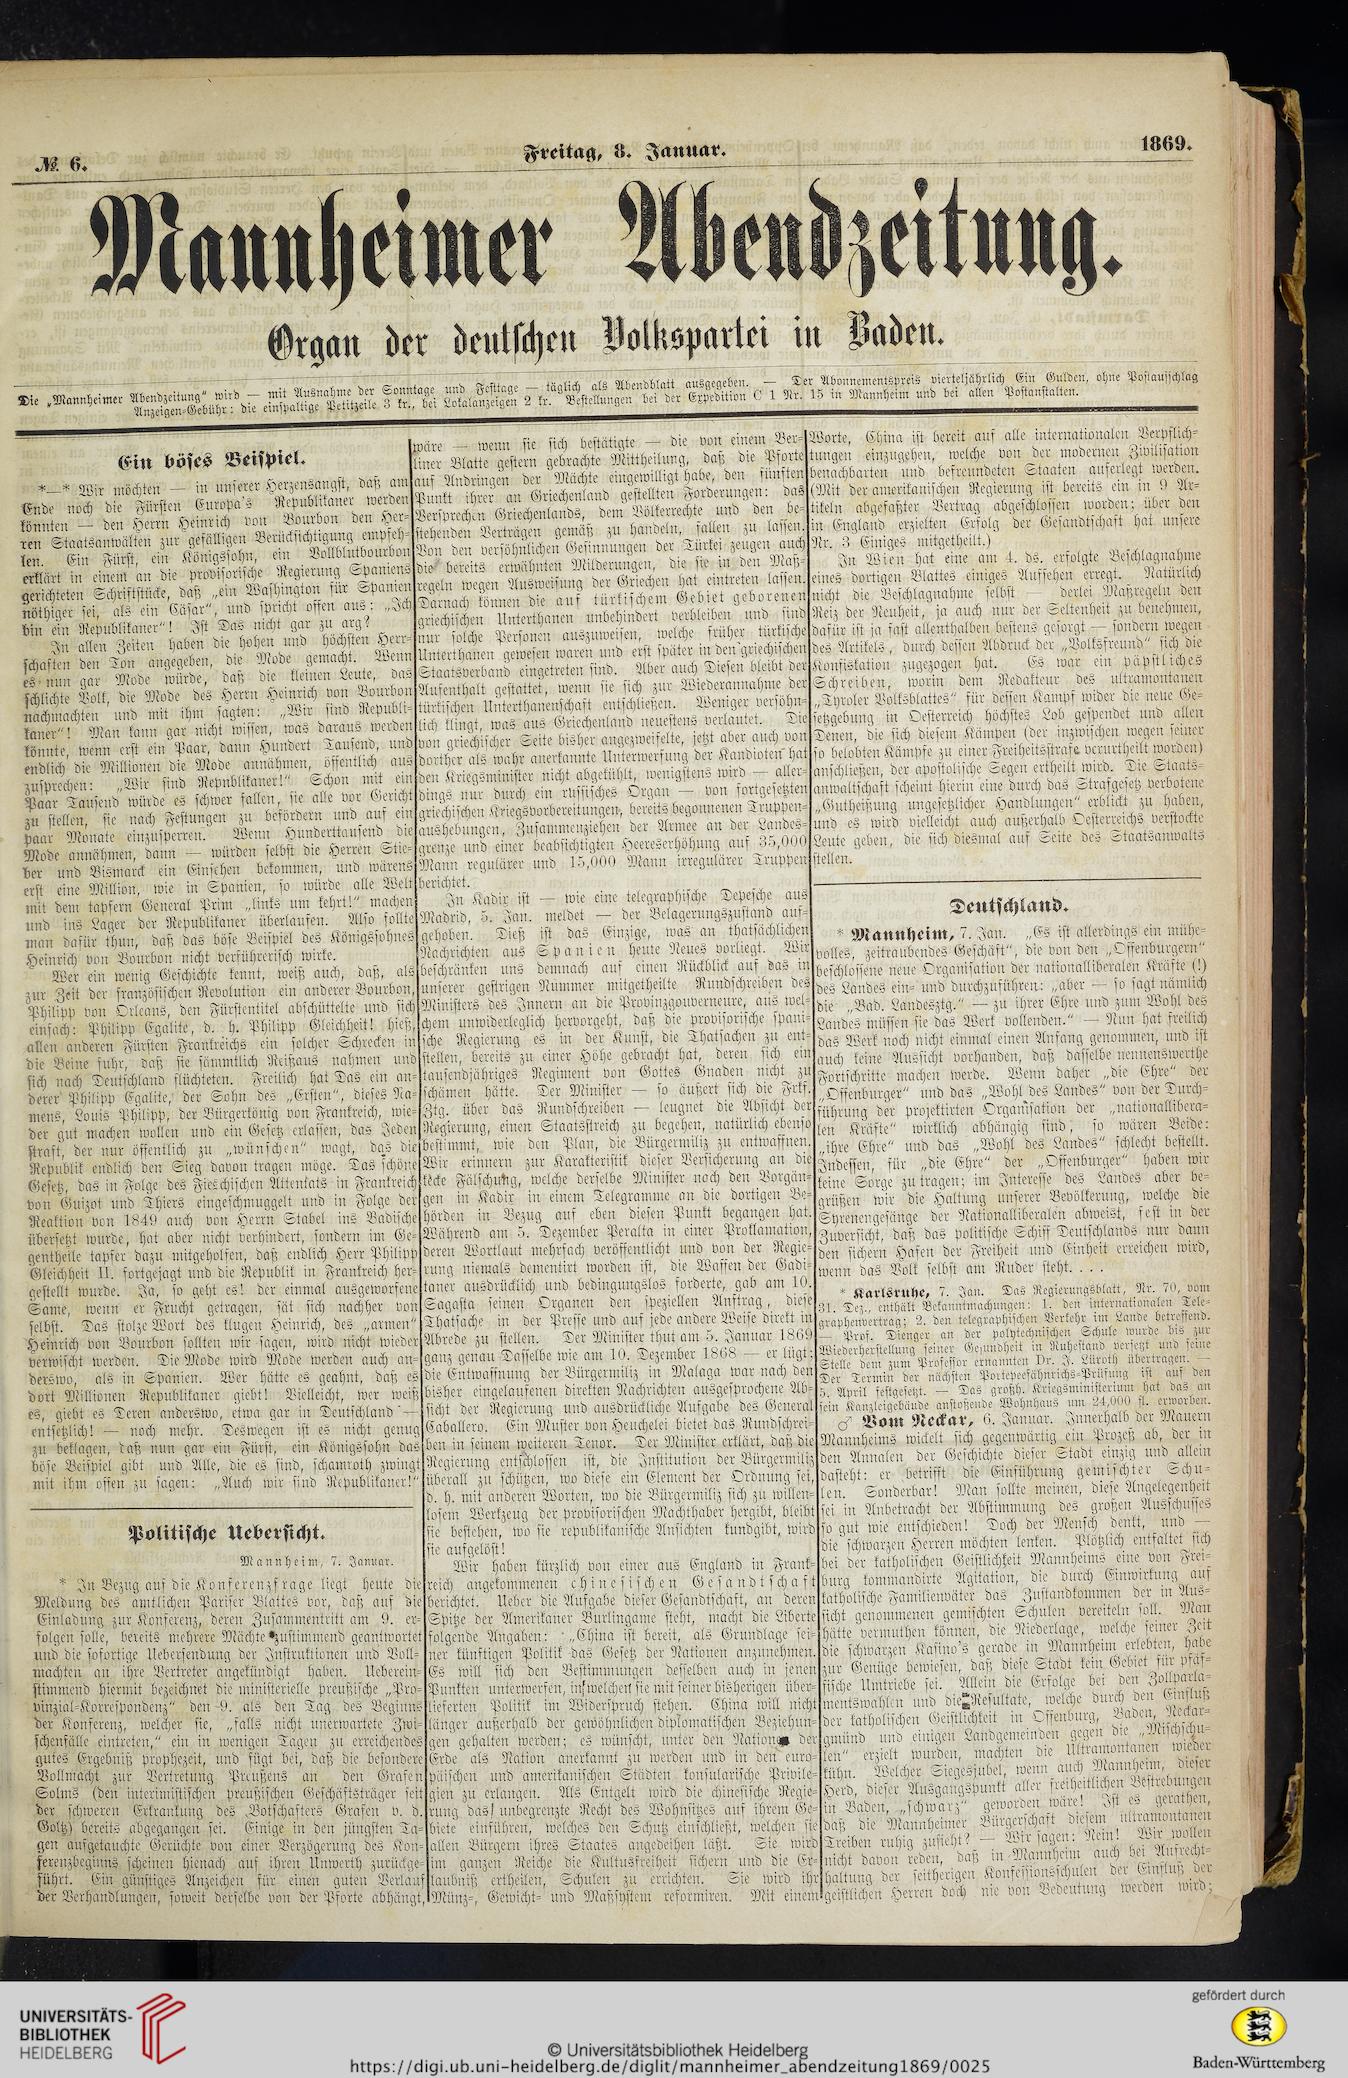 № 6.
Freitag, 8. Januar.
1869.
Mannheimer Abendzeitung.
Organ der deutschen Volkspartei in Baden.
Die „Mannheimer Abendzeitung“ wird — mit Ausnahme der Sonntage und Festtage — täglich als Abendblatt ausgegeben. — Der Abonnementspreis vierteljährlich Ein Gulden, ohne Postaufschlag
Anzeigen-Gebühr: die einspaltige Petitzeile 3 kr., bei Lokalanzeigen 2 kr. Bestellungen bei der Expedition C 1 Nr. 15 in Mannheim und bei allen Postanstalten.
Ein böses Beispiel.
*—* Wir möchten — in unserer Herzensangst, daß am
Ende noch die Fürsten Europa's Republikaner werden
könnten — den Herrn Heinrich von Bourbon den Her-
ren Staatsanwälten zur gefälligen Berücksichtigung empfeh-
len. Ein Fürst, ein Königssohn, ein Vollblutbourbon
erklärt in einem an die provisorische Regierung Spaniens
gerichteten Schriftstücke, daß „ein Washington für Spanien
nöthiger sei, als ein Cäsar“, und spricht offen aus: „Ich
bin ein Republikaner“! Ist Das nicht gar zu arg?
In allen Zeiten haben die hohen und höchsten Herr-
schaften den Ton angegeben, die Mode gemacht. Wenn
es nun gar Mode würde, daß die kleinen Leute, das
schlichte Volk, die Mode des Herrn Heinrich von Bourbon
nachmachten und mit ihm sagten: „Wir sind Republi-
kaner“! Man kann gar nicht wissen, was daraus werden
könnte, wenn erst ein Paar, dann Hundert Tausend, und
endlich die Millionen die Mode annähmen, öffentlich aus
zusprechen: „Wir sind Republikaner!“ Schon mit ein
Paar Tausend würde es schwer fallen, sie alle vor Gericht
zu stellen, sie nach Festungen zu befördern und auf ein
paar Monate einzusperren. Wenn Hunderttausend die
Mode annähmen, dann — würden selbst die Herren Stie-
ber und Bismarck ein Einsehen bekommen, und wärens
erst eine Million, wie in Spanien, so würde alle Welt
mit dem tapfern General Prim „links um kehrt!“ machen
und ins Lager der Republikaner überlaufen. Also sollte
man dafür thun, daß das böse Beispiel des Königssohnes
Heinrich von Bourbon nicht verführerisch wirke.
Wer ein wenig Geschichte kennt, weiß auch, daß, als
zur Zeit der französischen Revolution ein anderer Bourbon,
Philipp von Orleans, den Fürstentitel abschüttelte und sich
einfach: Philipp Egalite, d. h. Philipp Gleichheit! hieß,
allen anderen Fürsten Frankreichs ein solcher Schrecken in
die Beine fuhr, daß sie sämmtlich Reißaus nahmen und
sich nach Deutschland flüchteten. Freilich hat Das ein an-
derer Philipp Egalite, der Sohn des „Ersten“, dieses Na-
mens, Louis Philipp, der Bürgerkönig von Frankreich, wie-
der gut machen wollen und ein Gesetz erlassen, das Jeden
straft, der nur öffentlich zu „wünschen“ wagt, das die
Republik endlich den Sieg davon tragen möge. Das schöne
Gesetz, das in Folge des Fieschischen Attentats in Frankreich
von Guizot und Thiers eingeschmuggelt und in Folge der
Reaktion von 1849 auch von Herrn Stabel ins Badische
übersetzt wurde, hat aber nicht verhindert, sondern im Ge-
gentheile tapfer dazu mitgeholfen, daß endlich Herr Philipp
Gleichheit II. fortgejagt und die Republik in Frankreich her-
gestellt wurde. Ja, so geht es! der einmal ausgeworfene
Same, wenn er Frucht getragen, sät sich nachher von
selbst. Das stolze Wort des klugen Heinrich, des „armen“
Heinrich von Bourbon sollten wir sagen, wird nicht wieder
verwischt werden. Die Mode wird Mode werden auch an-
derswo, als in Spanien. Wer hätte es geahnt, daß es
dort Millionen Republikaner giebt! Vielleicht, wer weiß
es, giebt es Deren anderswo, etwa gar in Deutschland —
entsetzlich! — noch mehr. Deswegen ist es nicht genug
zu beklagen, daß nun gar ein Fürst, ein Königssohn das
böse Beispiel gibt und Alle, die es sind, schamroth zwingt
mit ihm offen zu sagen: „Auch wir sind Republikaner!“
Politische Uebersicht.
Mannheim, 7. Januar.
* In Bezug auf die Konferenzfrage liegt heute die
Meldung des amtlichen Pariser Blattes vor, daß auf die
Einladung zur Konferenz, deren Zusammentritt am 9. er-
folgen solle, bereits mehrere Mächte zustimmend geantwortet
und die sofortige Uebersendung der Instruktionen und Voll-
machten an ihre Vertreter angekündigt haben. Ueberein-
stimmend hiermit bezeichnet die ministerielle preußische „Pro-
vinzial-Korrespondenz“ den 9. als den Tag des Beginns
der Konferenz, welcher sie, „falls nicht unerwartete Zwi-
schenfälle eintreten,“ ein in wenigen Tagen zu erreichendes
gutes Ergebniß prophezeit, und fügt bei, daß die besondere
Vollmacht zur Vertretung Preußens an den Grafen
Solms (den interimistischen preußischen Geschäftsträger seit
der schweren Erkrankung des Botschafters Grafen v. d.
Goltz) bereits abgegangen sei. Einige in den jüngsten Ta-
gen aufgetauchte Gerüchte von einer Verzögerung des Kon-
ferenzbeginns scheinen hienach auf ihren Unwerth zurückge-
führt. Ein günstiges Anzeichen für einen guten Verlauf
der Verhandlungen, soweit derselbe von der Pforte abhängt,
wäre — wenn sie sich bestätigte — die von einem Ber-
liner Blatte gestern gebrachte Mittheilung, daß die Pforte
auf Andringen der Mächte eingewilligt habe, den fünften
Punkt ihrer an Griechenland gestellten Forderungen: das
Versprechen Griechenlands, dem Völkerrechte und den be-
stehenden Verträgen gemäß zu handeln, fallen zu lassen.
Von den versöhnlichen Gesinnungen der Türkei zeugen auch
die bereits erwähnten Milderungen, die sie in den Maß-
regeln wegen Ausweisung der Griechen hat eintreten lassen.
Darnach können die auf türkischem Gebiet geborenen
griechischen Unterthanen unbehindert verbleiben und sind
nur solche Personen auszuweisen, welche früher türkische
Unterthanen gewesen waren und erst später in den griechischen
Staatsverband eingetreten sind. Aber auch Diesen bleibt der
Aufenthalt gestattet, wenn sie sich zur Wiederannahme der
türkischen Unterthanenschaft entschließen. Weniger versöhn-
lich klingt, was aus Griechenland neuestens verlautet. Die
von griechischer Seite bisher angezweifelte, jetzt aber auch von
dorther als wahr anerkannte Unterwerfung der Kandioten hat
den Kriegsminister nicht abgekühlt, wenigstens wird — aller-
dings nur durch ein russisches Organ — von fortgesetzten
griechischen Kriegsvorbereitungen, bereits begonnenen Truppen-
aushebungen, Zusammenziehen der Armee an der Landes-
grenze und einer beabsichtigten Heereserhöhung auf 35,000
Mann regulärer und 15,000 Mann irregulärer Truppen
berichtet.
In Kadix ist — wie eine telegraphische Depesche aus
Madrid, 5. Jan. meldet — der Belagerungszustand auf-
gehoben. Dieß ist das Einzige, was an thatsächlichen
Nachrichten aus Spanien heute Neues vorliegt. Wir
beschränken uns demnach auf einen Rückblick auf das in
unserer gestrigen Nummer mitgetheilte Rundschreiben des
Ministers des Innern an die Provinzgouverneure, aus wel-
chem unwiderleglich hervorgeht, daß die provisorische spani-
sche Regierung es in der Kunst, die Thatsachen zu ent-
stellen, bereits zu einer Höhe gebracht hat, deren sich ein
tausendjähriges Regiment von Gottes Gnaden nicht zu
schämen hätte. Der Minister — so äußert sich die Frkf.
Ztg. über das Rundschreiben — leugnet die Absicht der
Regierung, einen Staatsstreich zu begehen, natürlich ebenso
bestimmt, wie den Plan, die Bürgermiliz zu entwaffnen.
Wir erinnern zur Karakteristik dieser Versicherung an die
kecke Fälschung, welche derselbe Minister nach den Vorgän-
gen in Kadix in einem Telegramme an die dortigen Be-
hörden in Bezug auf eben diesen Punkt begangen hat.
Während am 5. Dezember Peralta in einer Proklamation,
deren Wortlaut mehrfach veröffentlicht und von der Regie-
rung niemals dementirt worden ist, die Waffen der Gadi-
taner ausdrücklich und bedingungslos forderte, gab am 10.
Sagasta seinen Organen den speziellen Auftrag, diese
Thatsache in der Presse und auf jede andere Weise direkt in
Abrede zu stellen. Der Minister thut am 5. Januar 1869
ganz genau Dasselbe wie am 10. Dezember 1868 — er lügt:
die Entwaffnung der Bürgermiliz in Malaga war nach den
bisher eingelaufenen direkten Nachrichten ausgesprochene Ab-
sicht der Regierung und ausdrückliche Aufgabe des General
Caballero. Ein Muster von Heuchelei bietet das Rundschrei-
ben in seinem weiteren Tenor. Der Minister erklärt, daß die
Regierung entschlossen ist, die Institution der Bürgermiliz
überall zu schützen, wo diese ein Element der Ordnung sei,
d. h. mit anderen Worten, wo die Bürgermiliz sich zu willen-
losem Werkzeug der provisorischen Machthaber hergibt, bleibt
sie bestehen, wo sie republikanische Ansichten kundgibt, wird
sie aufgelöst!
Wir haben kürzlich von einer aus England in Frank-
reich angekommenen chinesischen Gesandtschaft
berichtet. Ueber die Aufgabe dieser Gesandtschaft, an deren
Spitze der Amerikaner Burlingame steht, macht die Liberte
folgende Angaben: „China ist bereit, als Grundlage sei-
ner künftigen Politik das Gesetz der Nationen anzunehmen.
Es will sich den Bestimmungen desselben auch in jenen
Punkten unterwerfen, in welchen sie mit seiner bisherigen über-
lieferten Politik im Widerspruch stehen. China will nicht
länger außerhalb der gewöhnlichen diplomatischen Beziehun-
gen gehalten werden; es wünscht, unter den Nationen der
Erde als Nation anerkannt zu werden und in den euro-
päischen und amerikanischen Städten konsularische Privile-
gien zu erlangen. Als Entgelt wird die chinesische Regie-
rung das unbegrenzte Recht des Wohnsitzes auf ihrem Ge-
biete einführen, welches den Schutz einschließt, welchen sie
allen Bürgern ihres Staates angedeihen läßt. Sie wird
im ganzen Reiche die Kultusfreiheit sichern und die Er-
laubniß ertheilen, Schulen zu errichten. Sie wird ihr
Münz-, Gewicht- und Maßsystem reformiren. Mit einem
Worte, China ist bereit auf alle internationalen Verpflich-
tungen einzugehen, welche von der modernen Zivilisation
benachbarten und befreundeten Staaten auferlegt werden.
(Mit der amerikanischen Regierung ist bereits ein in 9 Ar-
tikeln abgefaßter Vertrag abgeschlossen worden; über den
in England erzielten Erfolg der Gesandtschaft hat unsere
Nr. 3 Einiges mitgetheilt.)
In Wien hat eine am 4. ds. erfolgte Beschlagnahme
eines dortigen Blattes einiges Aufsehen erregt. Natürlich
nicht die Beschlagnahme selbst — derlei Maßregeln den
Reiz der Neuheit, ja auch nur der Seltenheit zu benehmen,
dafür ist ja fast allenthalben bestens gesorgt — sondern wegen
des Artikels, durch dessen Abdruck der „Volksfreund“ sich die
Konfiskation zugezogen hat. Es war ein päpstliches
Schreiben, worin dem Redakteur des ultramontanen
„Tyroler Volksblattes“ für dessen Kampf wider die neue Ge-
setzgebung in Oesterreich höchstes Lob gespendet und allen
Denen, die sich diesem Kämpen (der inzwischen wegen seiner
so belobten Kämpfe zu einer Freiheitsstrafe verurtheilt worden)
anschließen, der apostolische Segen ertheilt wird. Die Staats-
anwaltschaft scheint hierin eine durch das Strafgesetz verbotene
„Gutheißung ungesetzlicher Handlungen“ erblickt zu haben,
und es wird vielleicht auch außerhalb Oesterreichs verstockte
Leute geben, die sich diesmal auf Seite des Staatsanwalts
stellen.
Deutschland.
* Mannheim, 7. Jan. „Es ist allerdings ein mühe-
volles, zeitraubendes Geschäft“, die von den „Offenburgern“
beschlossene neue Organisation der nationalliberalen Kräfte (!)
des Landes ein- und durchzuführen: „aber — so sagt nämlich
die „Bad. Landesztg.“ — zu ihrer Ehre und zum Wohl des
Landes müssen sie das Werk vollenden.“ — Nun hat freilich
das Werk noch nicht einmal einen Anfang genommen, und ist
auch keine Aussicht vorhanden, daß dasselbe nennenswerthe
Fortschritte machen werde. Wenn daher „die Ehre“ der
„Offenburger“ und das „Wohl des Landes“ von der Durch-
führung der projektirten Organisation der „nationallibera-
len Kräfte“ wirklich abhängig sind, so wären Beide:
„ihre Ehre“ und das „Wohl des Landes“ schlecht bestellt.
Indessen, für „die Ehre“ der „Offenburger“ haben wir
keine Sorge zu tragen; im Interesse des Landes aber be-
grüßen wir die Haltung unserer Bevölkerung, welche die
Syrenengesänge der Nationalliberalen abweist, fest in der
Zuversicht, daß das politische Schiff Deutschlands nur dann
den sichern Hafen der Freiheit und Einheit erreichen wird,
wenn das Volk selbst am Ruder steht. . . .
* Karlsruhe, 7. Jan. Das Regierungsblatt, Nr. 70, vom
31. Dez., enthält Bekanntmachungen: 1. den internationalen Tele-
graphenvertrag; 2. den telegraphischen Verkehr im Lande betreffend.
— Prof. Dienger an der polytechnischen Schule wurde bis zur
Wiederherstellung seiner Gesundheit in Ruhestand versetzt und seine
Stelle dem zum Professor ernannten Dr. J. Lüroth übertragen. —
Der Termin der nächsten Portepeefähnrichs-Prüfung ist auf den
5. April festgesetzt. — Das großh. Kriegsministerium hat das an
sein Kanzleigebäude anstoßende Wohnhaus um 24,000 fl. erworben.
♂ Vom Neckar, 6. Januar. Innerhalb der Mauern
Mannheims wickelt sich gegenwärtig ein Prozeß ab, der in
den Annalen der Geschichte dieser Stadt einzig und allein
dasteht: er betrifft die Einführung gemischter Schu-
len. Sonderbar! Man sollte meinen, diese Angelegenheit
sei in Anbetracht der Abstimmung des großen Ausschusses
so gut wie entschieden! Doch der Mensch denkt, und —
die schwarzen Herren möchten lenken. Plötzlich entfaltet sich
bei der katholischen Geistlichkeit Mannheims eine von Frei-
burg kommandirte Agitation, die durch Einwirkung auf
katholische Familienväter das Zustandkommen der in Aus-
sicht genommenen gemischten Schulen vereiteln soll. Man
hätte vermuthen können, die Niederlage, welche seiner Zeit
die schwarzen Kasino's gerade in Mannheim erlebten, habe
zur Genüge bewiesen, daß diese Stadt kein Gebiet für pfäf-
fische Umtriebe sei. Allein die Erfolge bei den Zollparla-
mentswahlen und die Resultate, welche durch den Einfluß
der katholischen Geistlichkeit in Offenburg, Baden, Neckar-
gmünd und einigen Landgemeinden gegen die „Mischschu-
len“ erzielt wurden, machten die Ultramontanen wieder
kühn. Welcher Siegesjubel, wenn auch Mannheim, dieser
Herd, dieser Ausgangspunkt aller freiheitlichen Bestrebungen
in Baden, „schwarz“ geworden wäre! Ist es gerathen,
daß die Mannheimer Bürgerschaft diesem ultramontanen
Treiben ruhig zusieht? — Wir sagen: Nein! Wir wollen
nicht davon reden, daß in Mannheim auch bei Aufrecht-
haltung der seitherigen Konfessionsschulen der Einfluß der
geistlichen Herren doch nie von Bedeutung werden wird;
UNIVERSITÄTS-
BIBLIOTHEK
HEIDELBERG
© Universitätsbibliothek Heidelberg
https://digi.ub.uni-heidelberg.de/diglit/mannheimer_abendzeitung1869/0025
gefördert durch
Baden-Württemberg